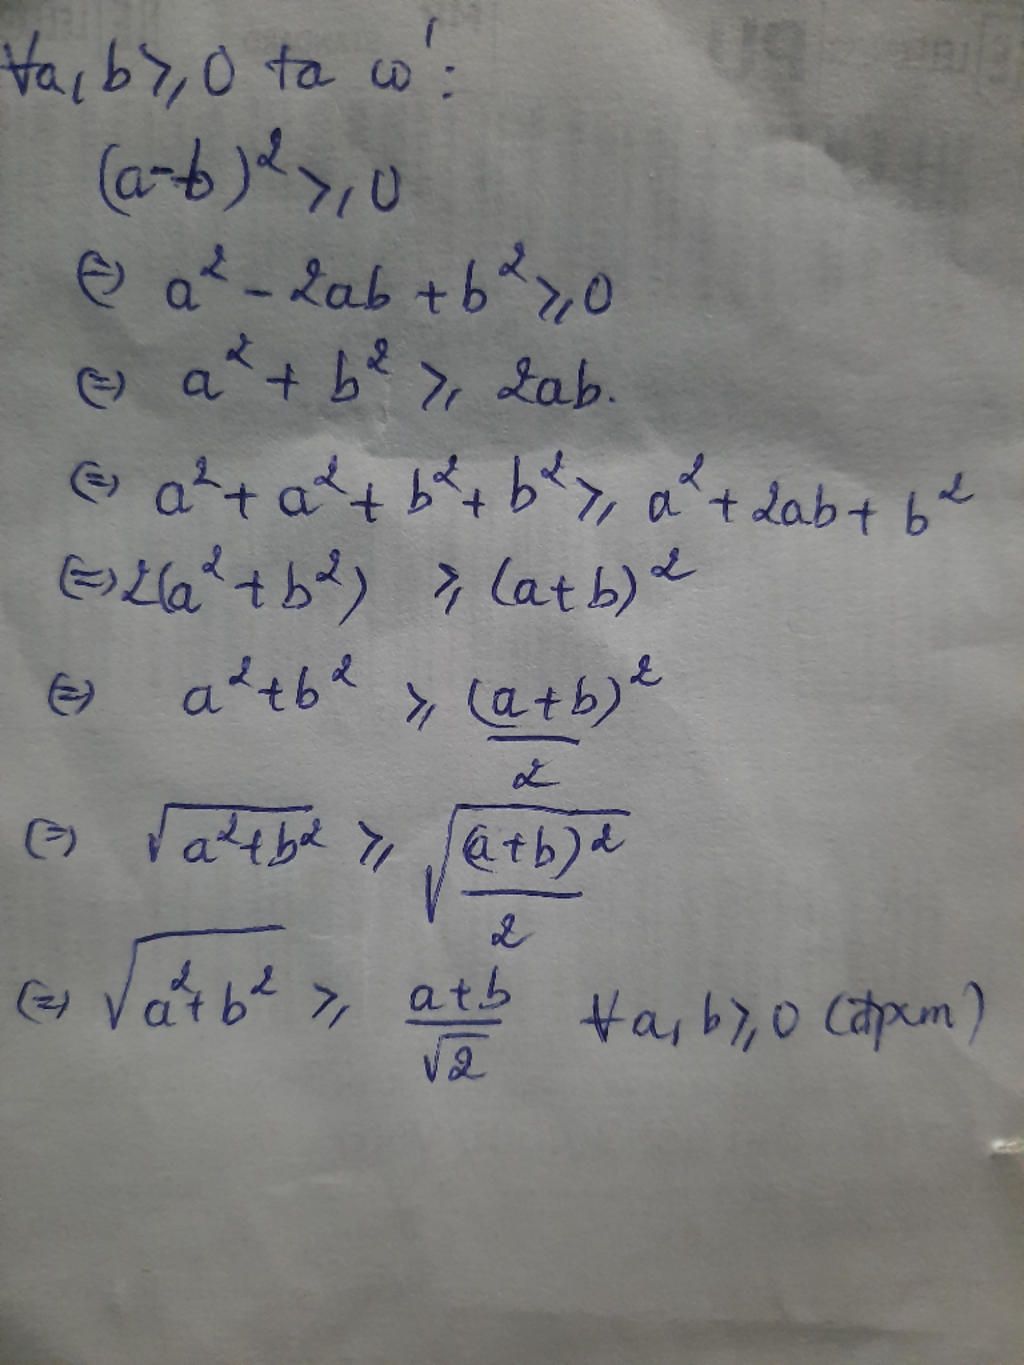 ∀a, b ≥ 0 ta có:
(a-b)² ≥ 0
⇔ a² - 2ab + b² ≥ 0
⇔ a² + b² ≥ 2ab.
⇔ a² + a² + b² + b² ≥ a² + 2ab + b²
⇔ 2(a² + b²) ≥ (a+b)²
⇔ a² + b² ≥ (a+b)²/2
⇔ √(a²+b²) ≥ √((a+b)²/2)
⇔ √(a²+b²) ≥ (a+b)/√2 ∀a, b ≥ 0 (đpcm)